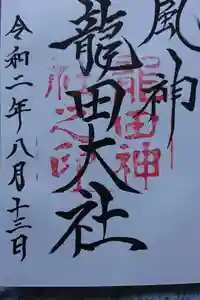 風神
龍田大社
龍田神
社之印
令和二年八月十三日